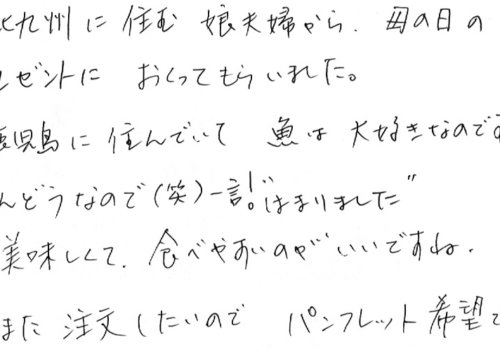 北九州に住む娘夫婦から、母の日の
レゼントに おくってもらいました。
鹿児島に住んでいて 魚は大好きなのです
んどうなので(笑)一言!!"はまりました"
美味しくて、食べやすいのがいいですね。
また注文したいので パンフレット希望